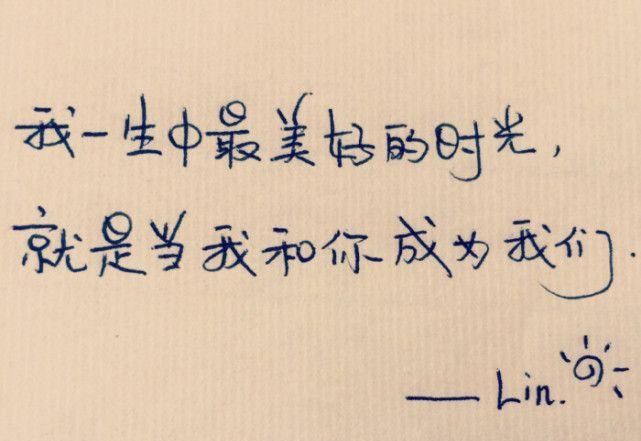 我一生中最美好的时光,
就是当我和你成为我们.
—— Lin.